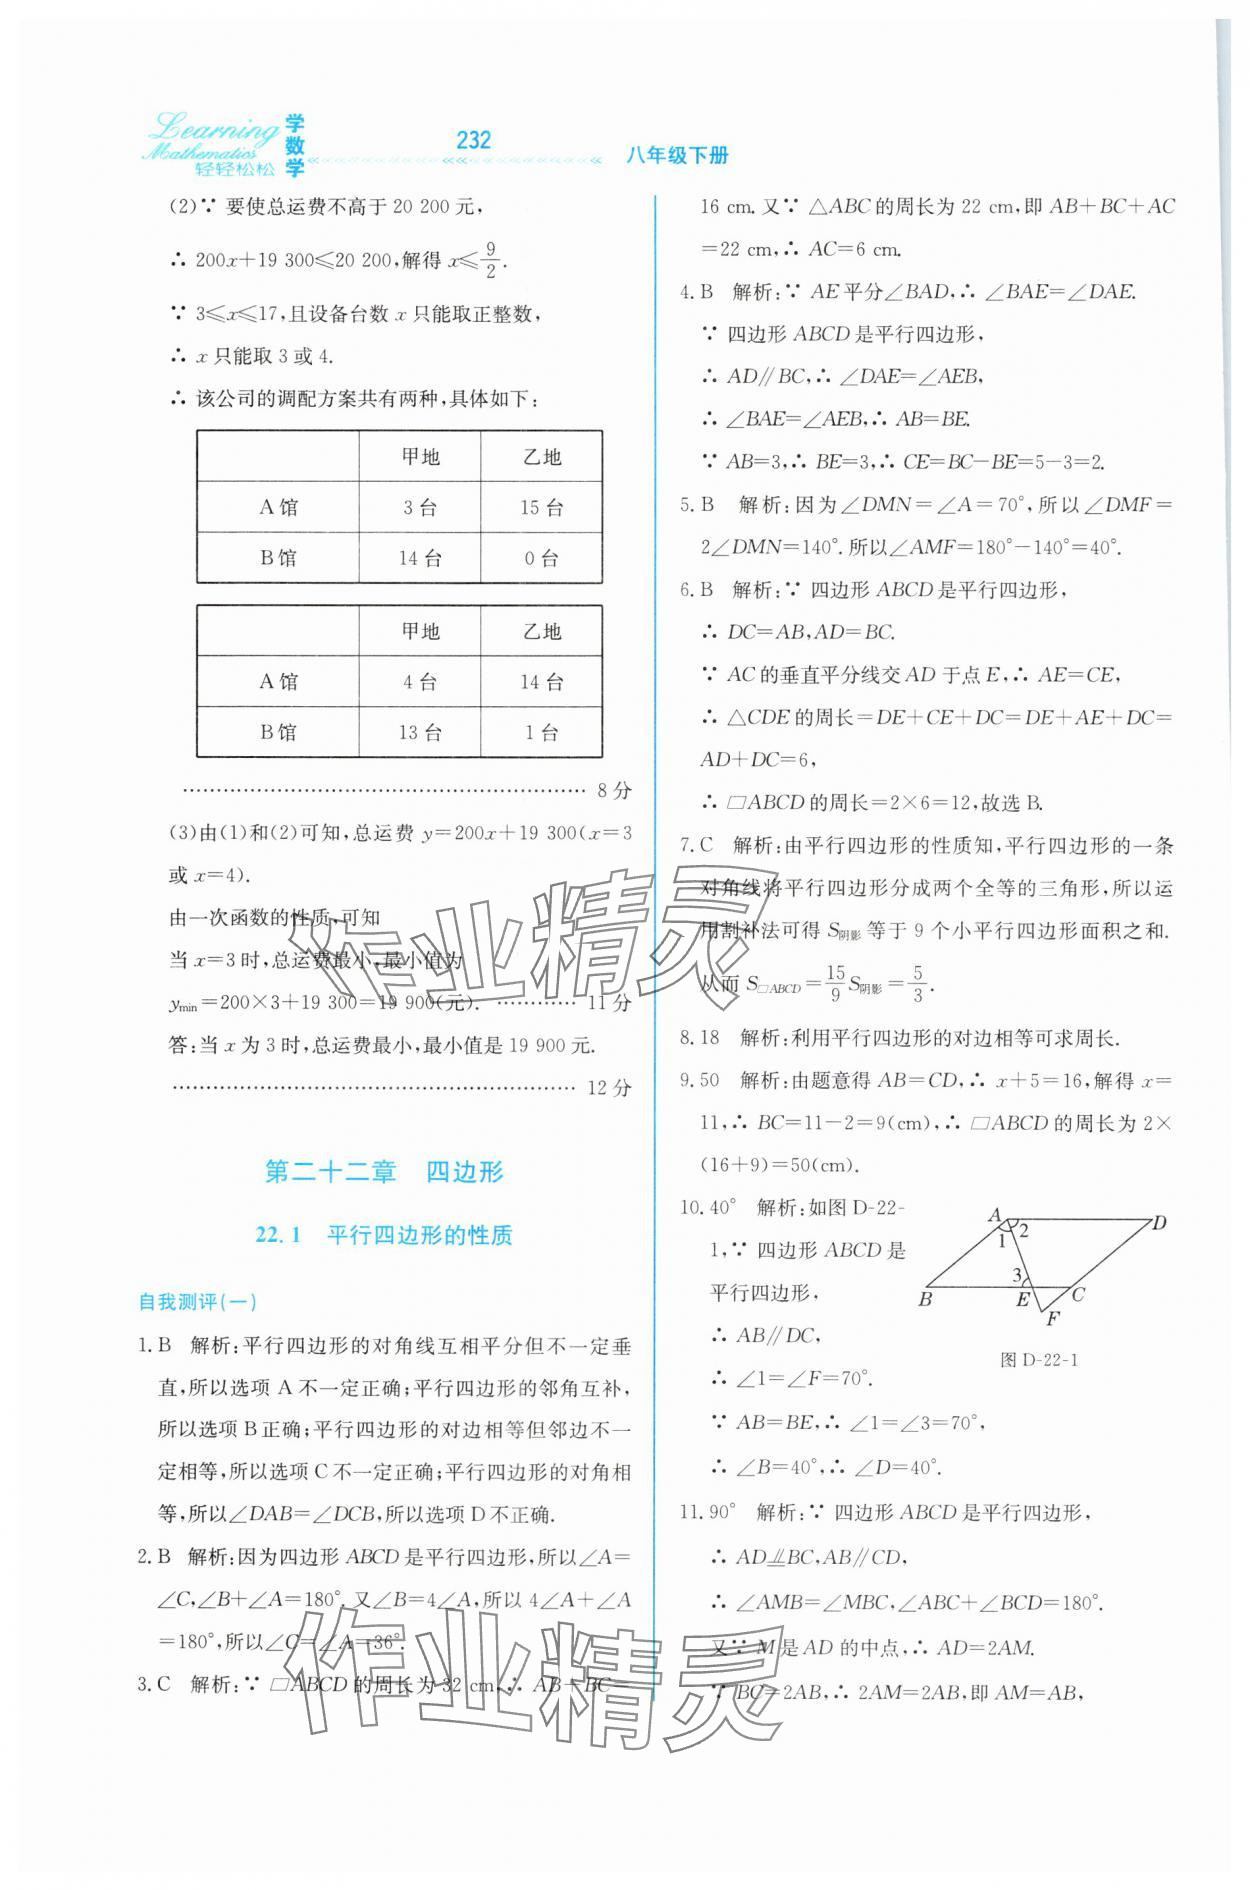 Learning
Mathematics
轻轻松松
学数学
232
八年级下册
(2)∵ 要使总运费不高于 20 200 元，
∴ 200x＋19 300≤20 200，解得 x≤9/2.
∵ 3≤x≤17，且设备台数 x 只能取正整数，
∴ x 只能取 3 或 4.
∴ 该公司的调配方案共有两种，具体如下：
甲地 乙地
A 馆 3 台 15 台
B 馆 14 台 0 台
甲地 乙地
A 馆 4 台 14 台
B 馆 13 台 1 台
………………………………………………… 8 分
(3)由(1)和(2)可知，总运费 y＝200x＋19 300(x＝3
或 x＝4).
由一次函数的性质，可知
当 x＝3 时，总运费最小，最小值为
ymin＝200×3＋19 300＝19 900(元). ………… 11 分
答：当 x 为 3 时，总运费最小，最小值是 19 900 元.
………………………………………………… 12 分
第二十二章 四边形
22.1 平行四边形的性质
自我测评(一)
1. B 解析：平行四边形的对角线互相平分但不一定垂
直，所以选项 A 不一定正确；平行四边形的邻角互补，
所以选项 B 正确；平行四边形的对边相等但邻边不一
定相等，所以选项 C 不一定正确；平行四边形的对角相
等，所以∠DAB＝∠DCB，所以选项 D 不正确.
2. B 解析：因为四边形 ABCD 是平行四边形，所以∠A＝
∠C，∠B＋∠A＝180°. 又∠B＝4∠A，所以 4∠A＋∠A
＝180°，所以∠C＝∠A＝36°.
3. C 解析：∵ □ABCD 的周长为 32 cm，∴ AB＋BC＝
16 cm. 又∵ △ABC 的周长为 22 cm，即 AB＋BC＋AC
＝22 cm，∴ AC＝6 cm.
4. B 解析：∵ AE 平分∠BAD，∴ ∠BAE＝∠DAE.
∵ 四边形 ABCD 是平行四边形，
∴ AD∥BC，∴ ∠DAE＝∠AEB，
∴ ∠BAE＝∠AEB，∴ AB＝BE.
∵ AB＝3，∴ BE＝3，∴ CE＝BC－BE＝5－3＝2.
5. B 解析：因为∠DMN＝∠A＝70°，所以∠DMF＝
2∠DMN＝140°. 所以∠AMF＝180°－140°＝40°.
6. B 解析：∵ 四边形 ABCD 是平行四边形，
∴ DC＝AB，AD＝BC.
∵ AC 的垂直平分线交 AD 于点 E，∴ AE＝CE，
∴ △CDE 的周长＝DE＋CE＋DC＝DE＋AE＋DC＝
AD＋DC＝6，
∴ □ABCD 的周长＝2×6＝12，故选 B.
7. C 解析：由平行四边形的性质知，平行四边形的一条
对角线将平行四边形分成两个全等的三角形，所以运
用割补法可得 S阴影 等于 9 个小平行四边形面积之和.
从而 S□ABCD＝15/9 S阴影＝5/3.
8. 18 解析：利用平行四边形的对边相等可求周长.
9. 50 解析：由题意得 AB＝CD，∴ x＋5＝16，解得 x＝
11，∴ BC＝11－2＝9(cm)，∴ □ABCD 的周长为 2×
(16＋9)＝50(cm).
10. 40° 解析：如图 D-22-
1，∵ 四边形 ABCD 是
平行四边形，
∴ AB∥DC，
∴ ∠1＝∠F＝70°.
∵ AB＝BE，∴ ∠1＝∠3＝70°，
∴ ∠B＝40°，∴ ∠D＝40°.
A D
1 2
3
B E C
F
图 D-22-1
11. 90° 解析：∵ 四边形 ABCD 是平行四边形，
∴ AD⫽BC，AB∥CD，
∴ ∠AMB＝∠MBC，∠ABC＋∠BCD＝180°.
又∵ M 是 AD 的中点，∴ AD＝2AM.
∵ BC＝2AB，∴ 2AM＝2AB，即 AM＝AB，
作业精灵
作业精灵